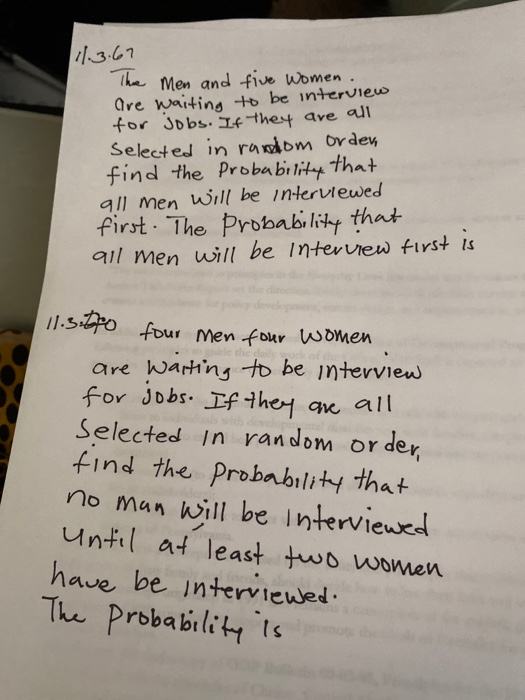 11.3.67
The Men and five Women.
are waiting to be interview
for Jobs. If they are all
Selected in random order,
find the Probability that
all men will be interviewed
first. The Probability that
all men will be Interview first is
11.3. four Men four Women
are waiting to be interview
for jobs. If they are all
Selected in random order,
find the Probability that
no man will be Interviewed
Until at least two women
have be interviewed.
The Probability is